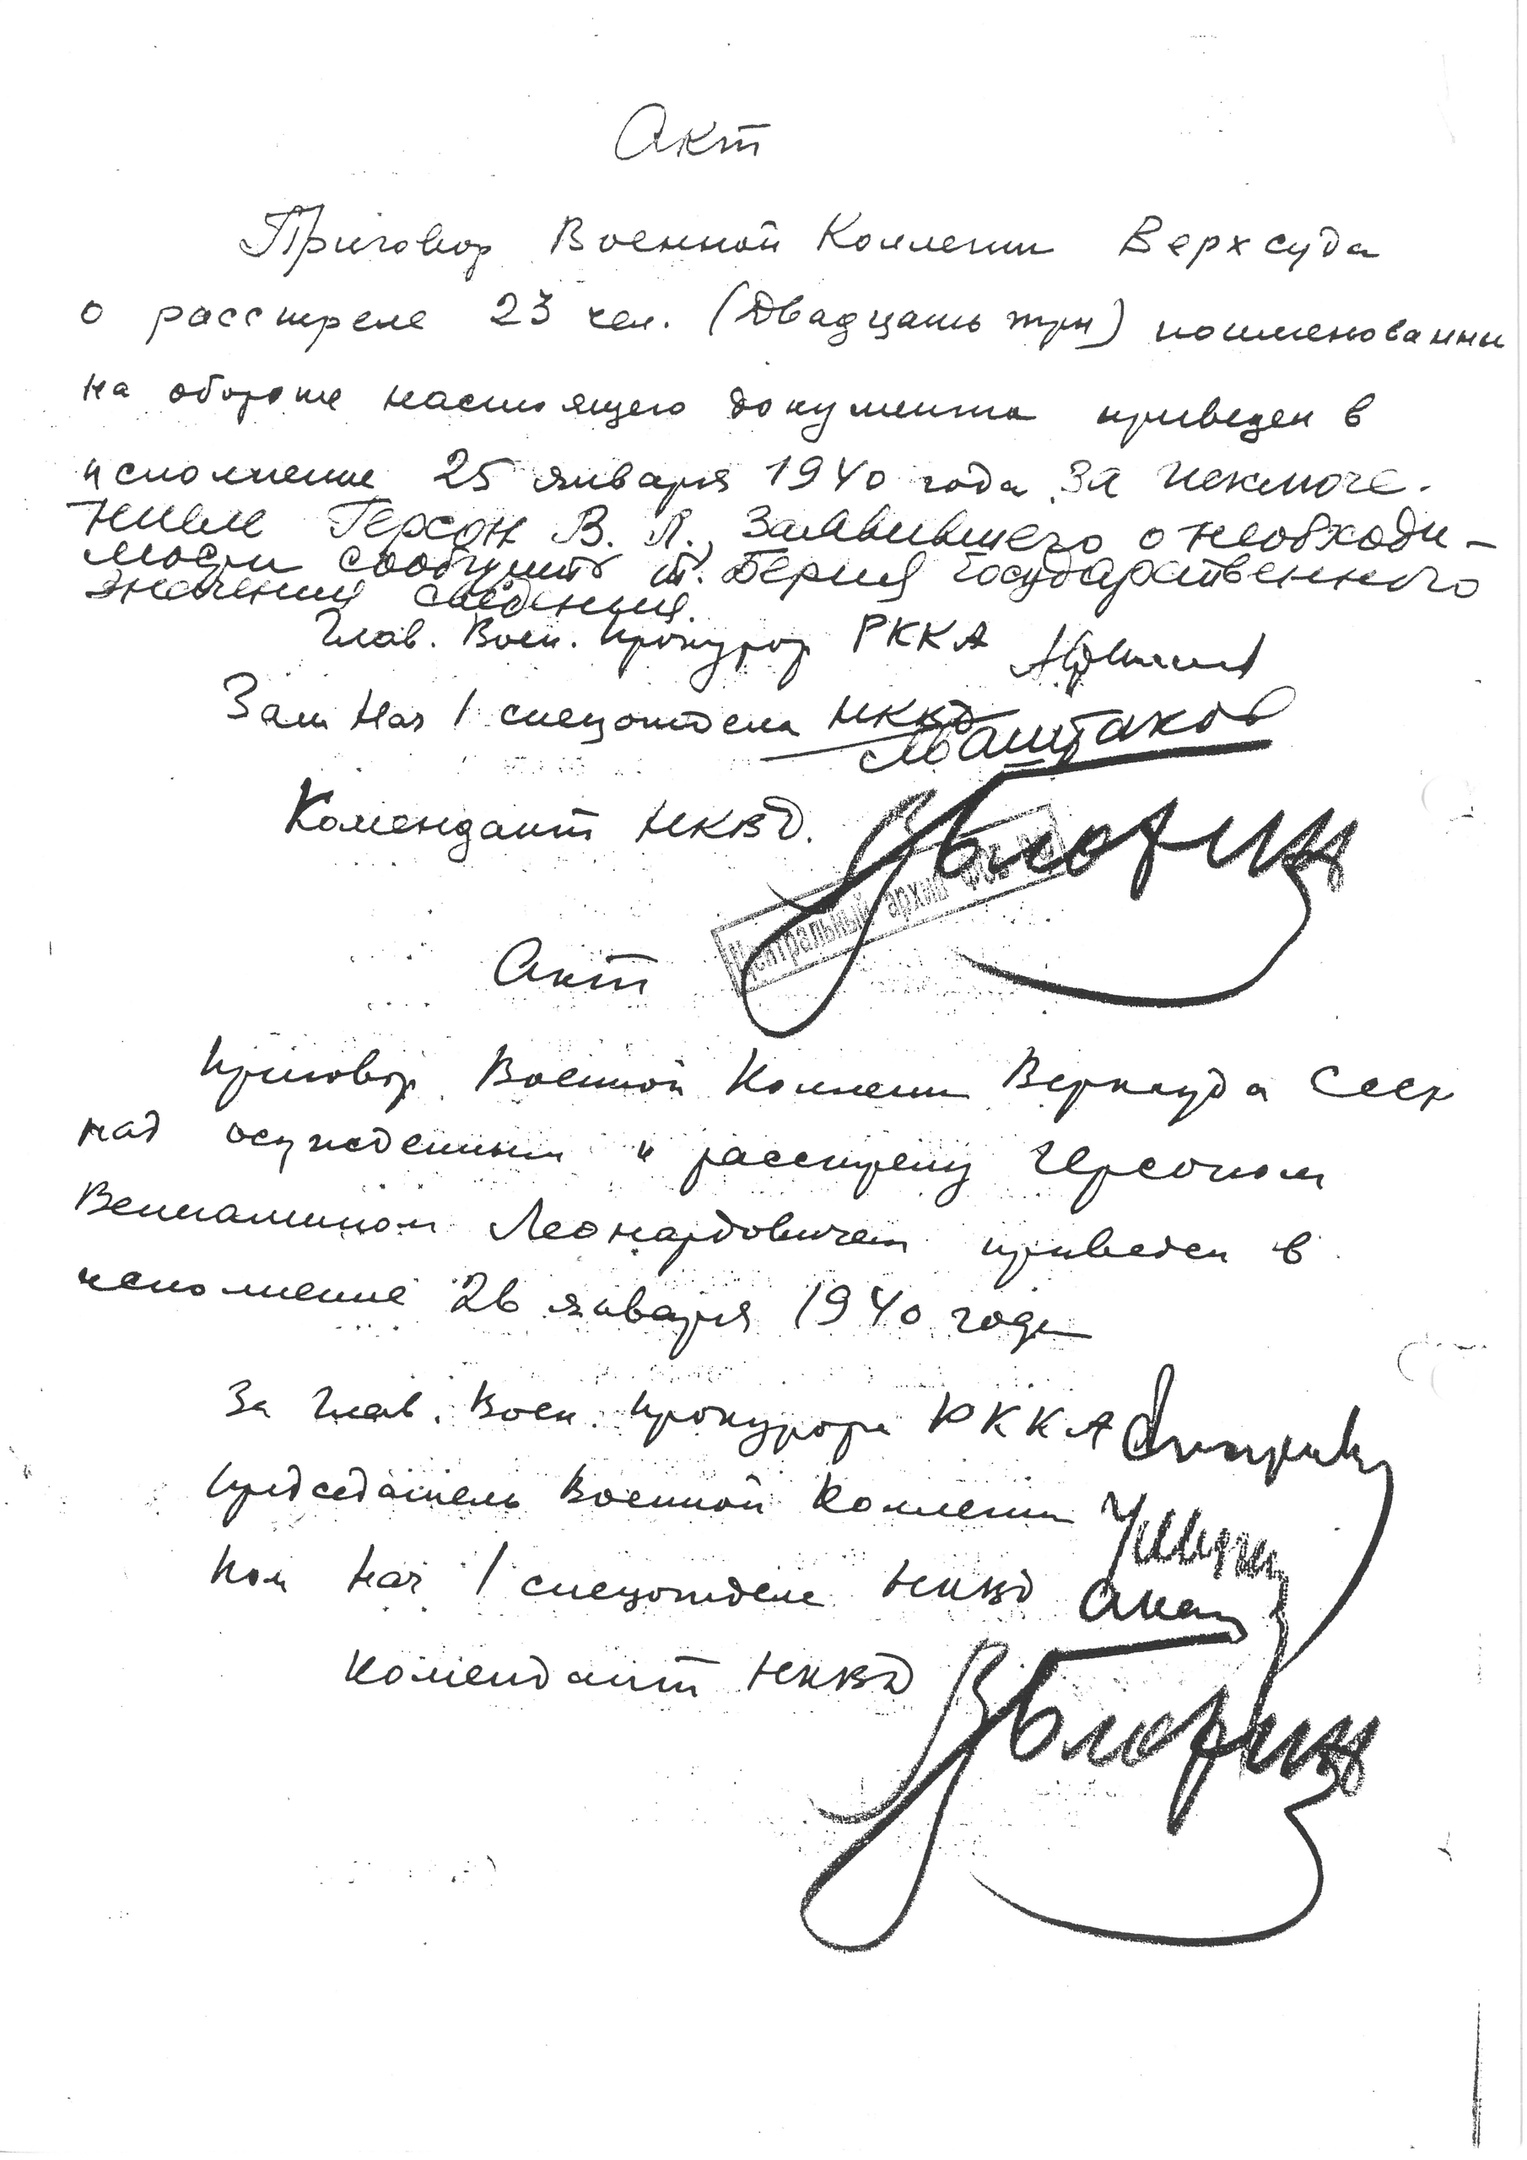 Акт
Приговор Военной Коллегии Верхсуда
о расстреле 23 чел. (двадцать три) поименованны
на обороте настоящего документа приведен в
исполнение 25 января 1940 года за исключе-
нием Герсон В. Л., заявившего о необходи-
мости сообщить т. Берия государственного
значения сведения.
Глав. Воен. прокурор РККА Афанасьев
Зам Нач 1 спецотдела НКВД
Баштаков
Комендант НКВД. Блохин
Центральный архив ФСБ
Акт
Приговор Военной Коллегии Верхсуда СССР
над осужденным к расстрелу Герсоном
Вениамином Леонардовичем приведен в
исполнение 26 января 1940 года
За Глав. Воен. прокурора РККА
Председатель Военной Коллегии Ульрих
Пом Нач 1 спецотдела НКВД
Комендант НКВД Блохин